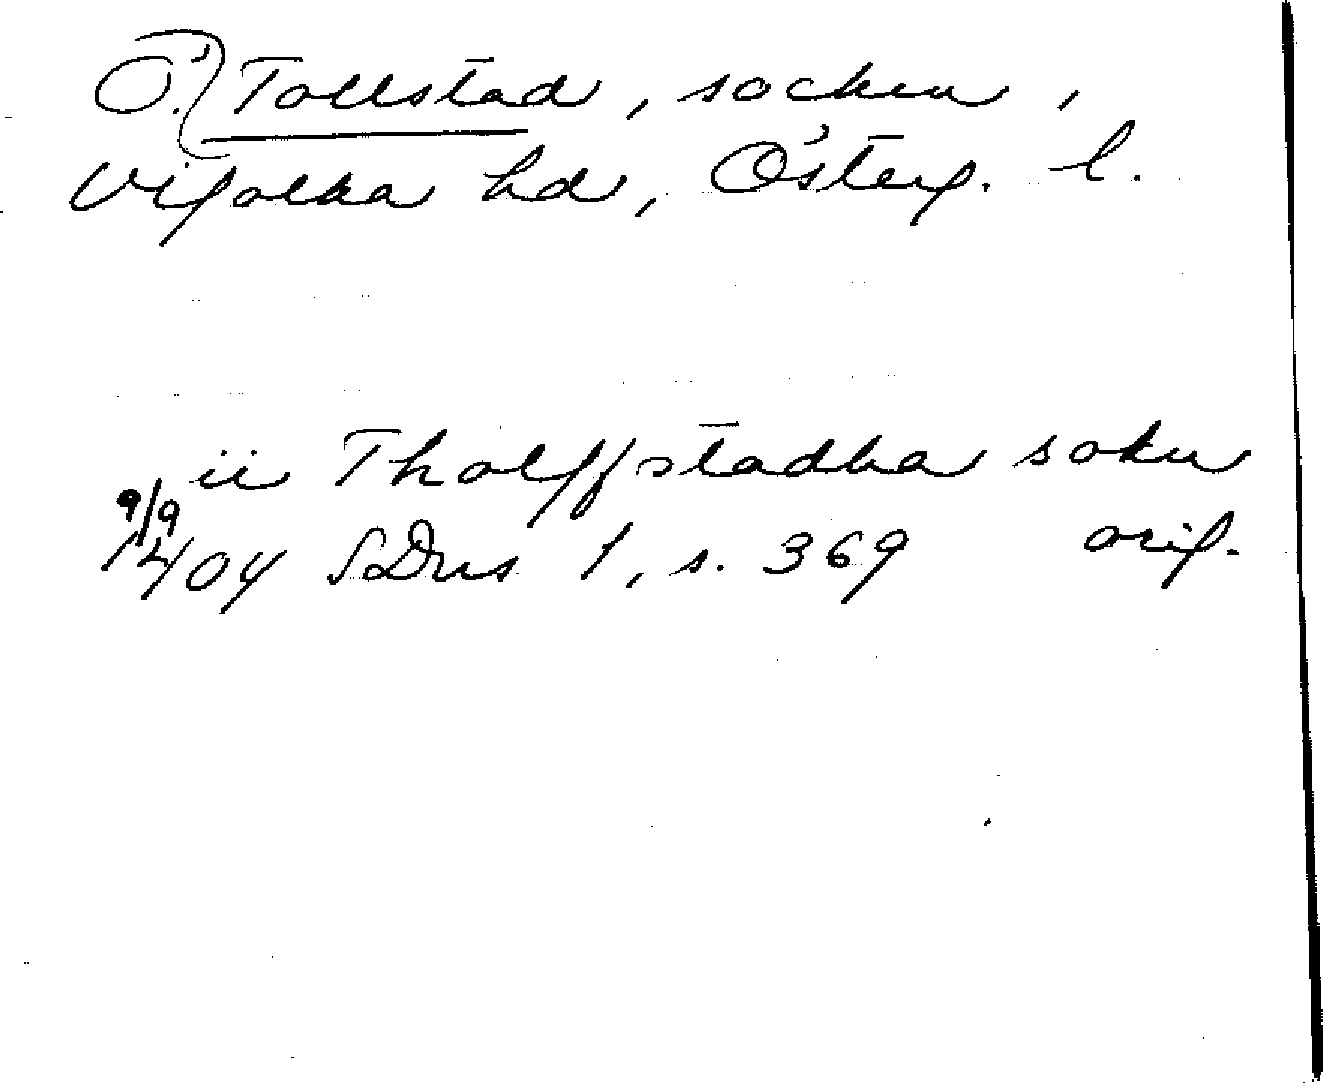 Ö.) Tollstad, socken,
Vifolka hd, Österg. l.
ii Tholffstadha sokn
9/9
1404 SDns 1, s. 369 orig.